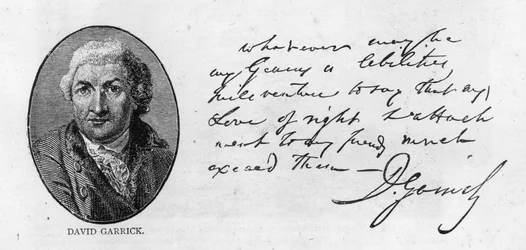 whatever may be
my Genius or Abilities,
I will venture to say that my
Love of right & attach
ment to my friends much
exceed them —
D. Garrick
DAVID GARRICK.